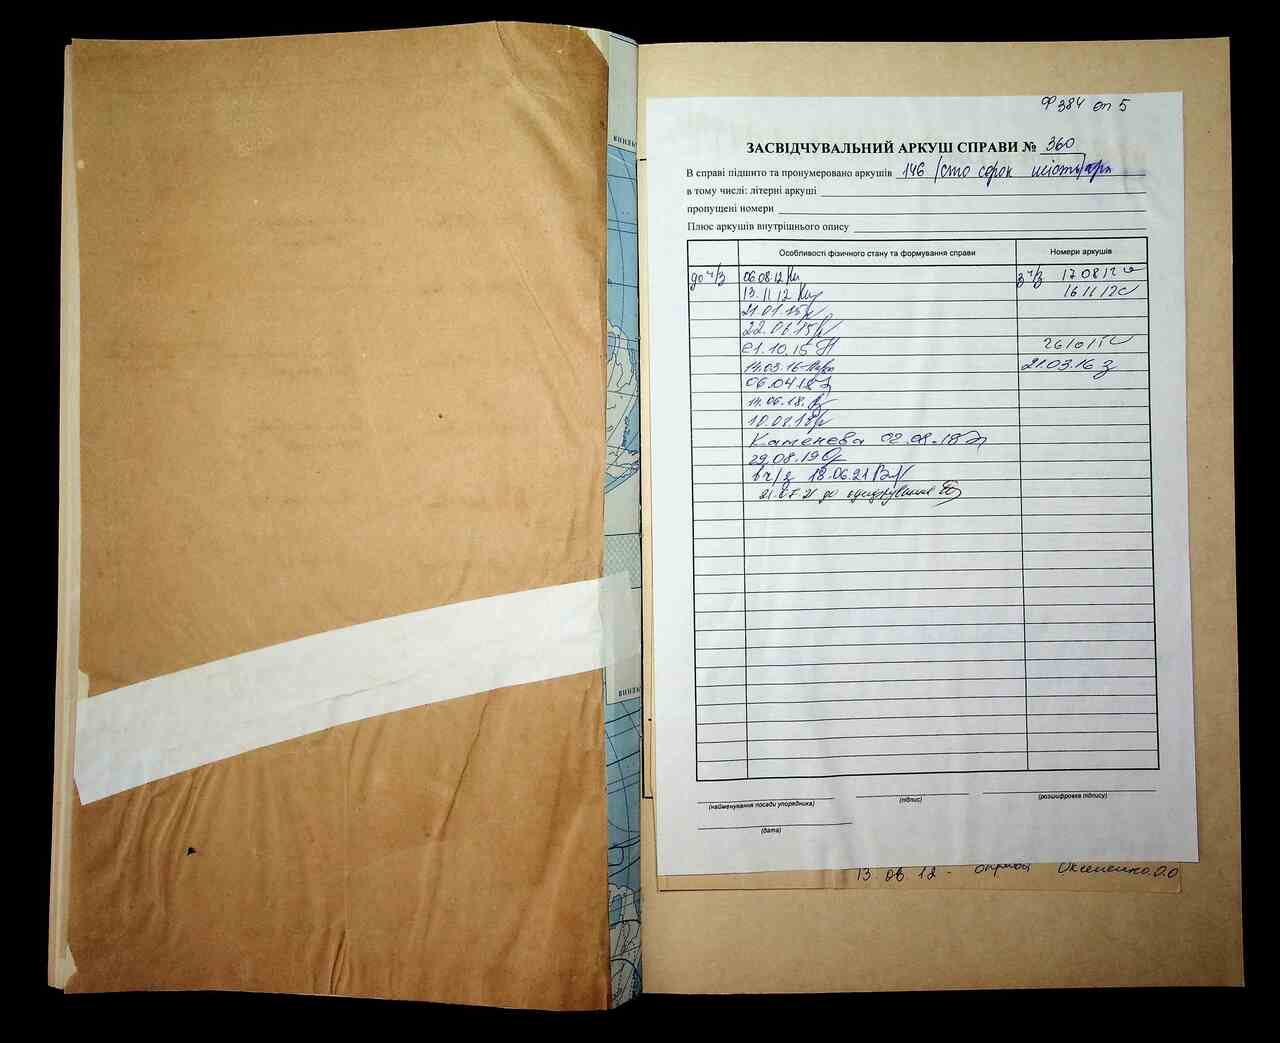 Ф 384 оп 5
ЗАСВІДЧУВАЛЬНИЙ АРКУШ СПРАВИ № 360
В справі підшито та пронумеровано аркушів 146 /сто сорок шість/
в тому числі: літерні аркуші
пропущені номери
Плюс аркушів внутрішнього опису
Особливості фізичного стану та формування справи Номери аркушів
до ч/з 06.08.12 з ч/з 17 08 12
13.11 12 16 11 12
21.01.15
22.01.15
01.10.15
14.03.16 21.03.16
06.04.18
14.06.18.
10.08.18
Каменева 02.08.18
29.08.19
в ч/з 18.06.21
21.07.21 до оцифрування
(найменування посади упорядника) (підпис) (розшифровка підпису)
(дата)
13 08 12 -